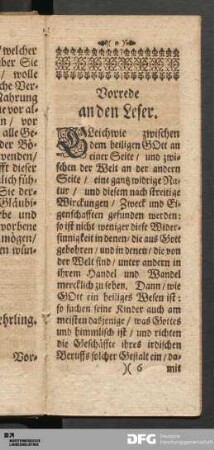 /welcher
ber Sie
/ wolle
che Ver-
Nahrung
ne vor al-
en / vor
alle Ge-
der Bö-
venden/
fft dieser
lich füh-
Sie der-
Gläubi-
rbe und
vorbene
mögen/
en wün-
ehrling.
Vor-
Vorrede
an den Leser.
GLeichwie zwischen
dem heiligen GOtt an
einer Seite / und zwi-
schen der Welt an der andern
Seite / eine gantz widrige Na-
tur / und diesem nach streitige
Wirckungen / Zweck und Ei-
genschafften gefunden werden:
so ist nicht weniger diese Wider-
sinnigkeit in denen / die aus Gott
gebohren / und in denen / die von
der Welt sind / unter andern in
ihrem Handel und Wandel
mercklich zu sehen. Dann / wie
GOtt ein heiliges Wesen ist:
so suchen seine Kinder auch am
meisten dasjenige / was Gottes
und himmlisch ist / und richten
die Geschäffte ihres irdischen
Beruffs solcher Gestalt ein / da-
)( 6 mit
DFG Deutsche
Forschungsgemeinschaft